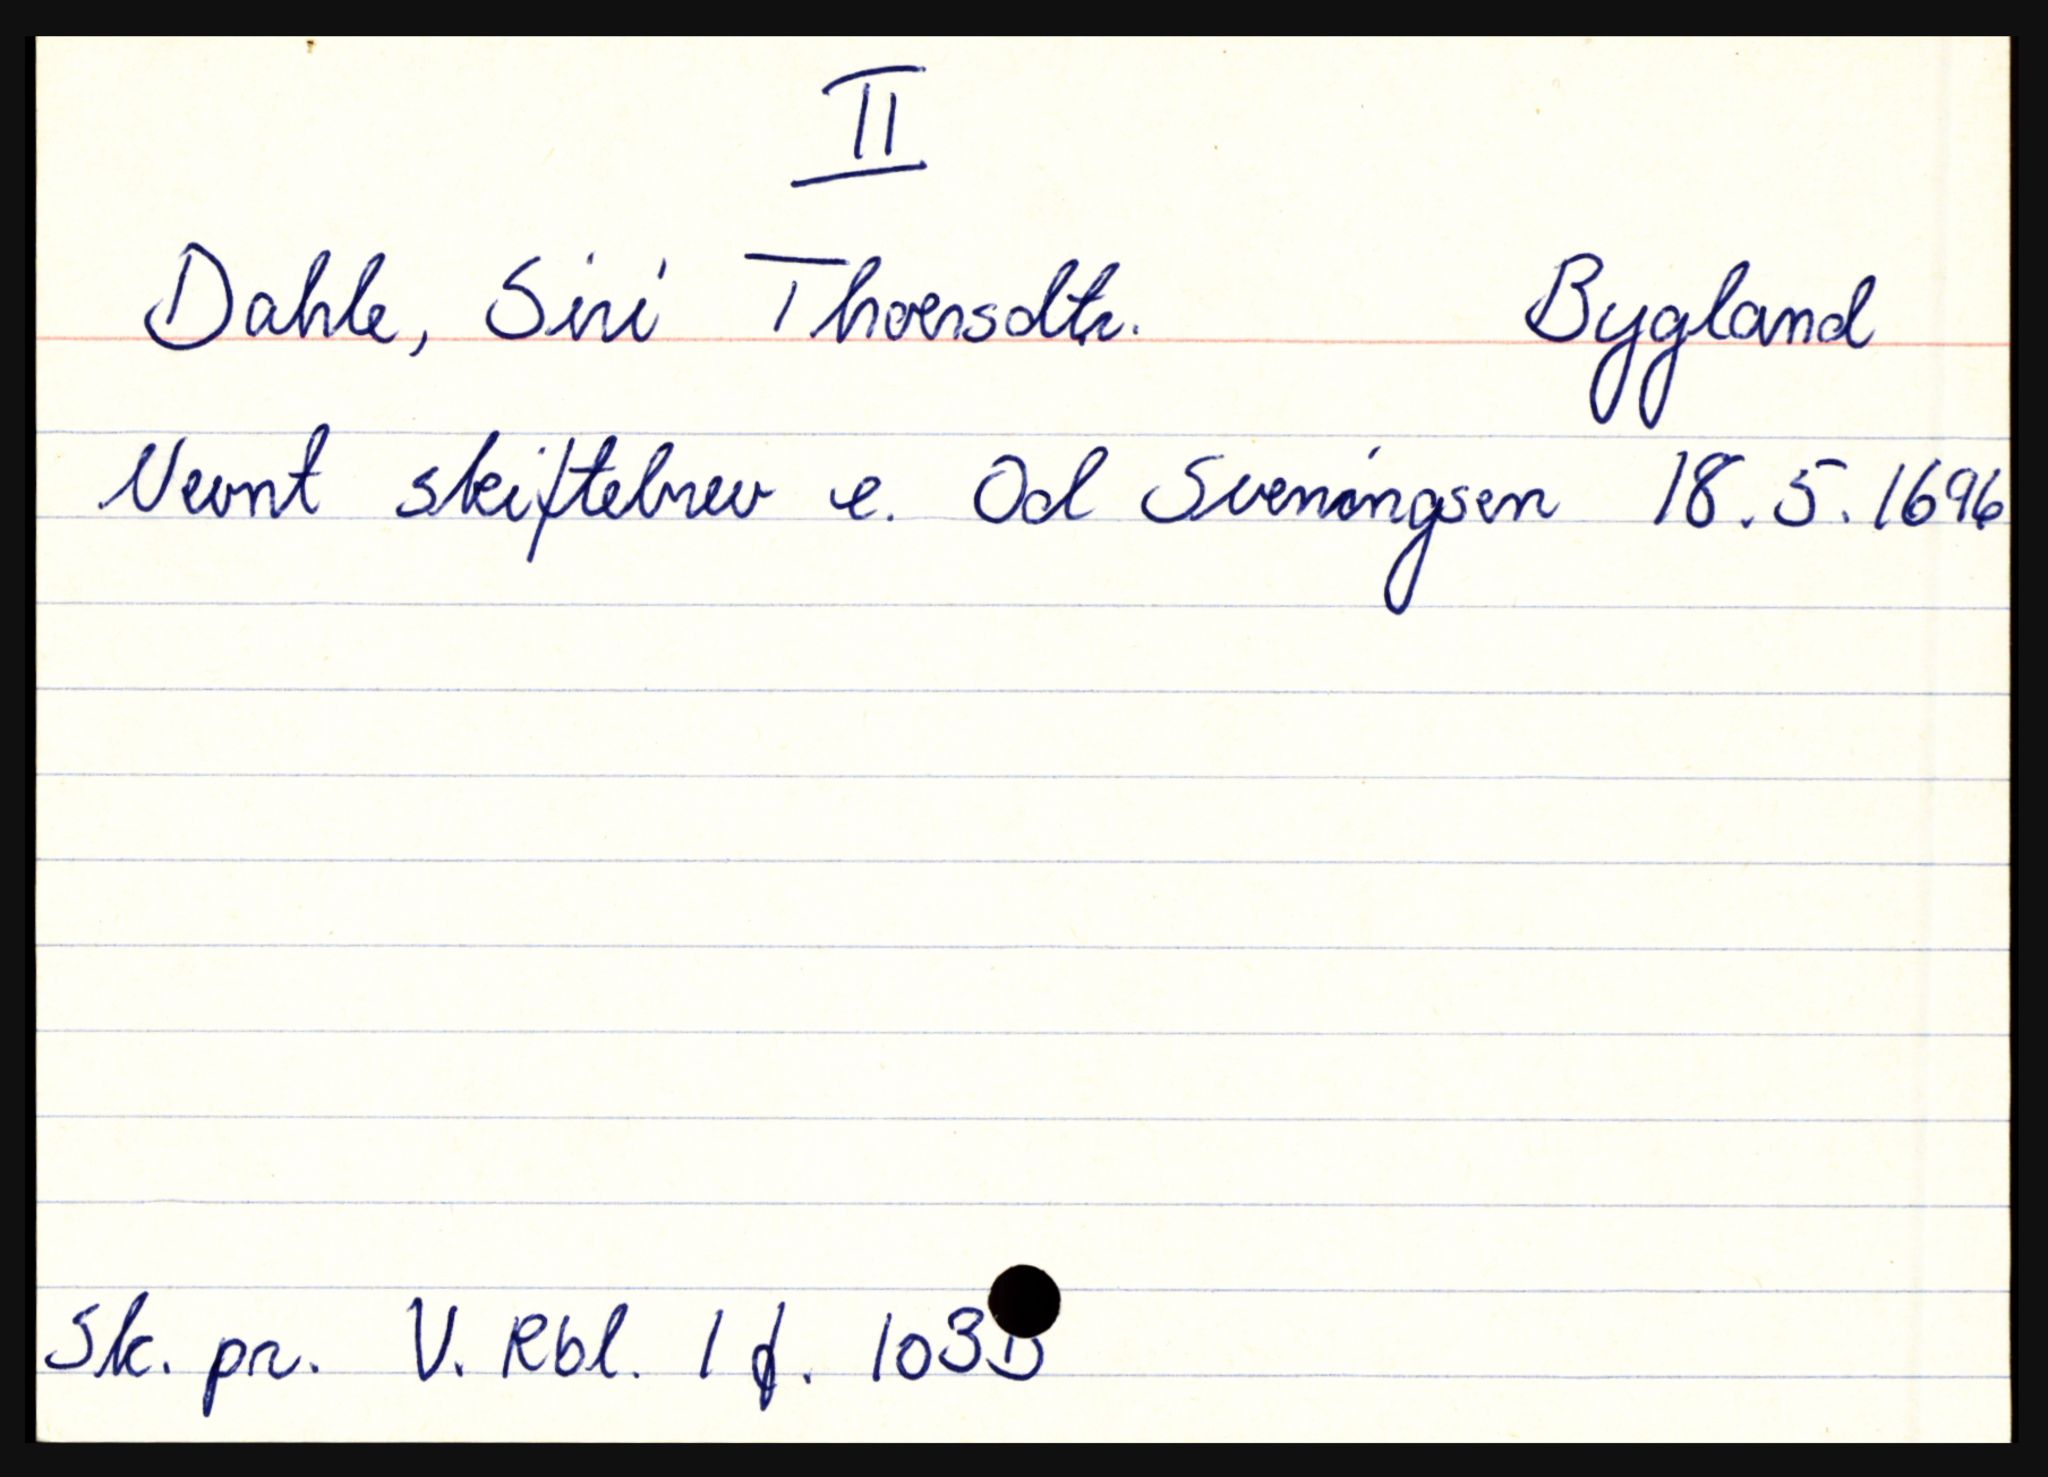 II
Dahle, Siri Thorersdtr. Bygland
Nevnt skiftebrev e. Od Sveningsen 18.5.1696
Sk. pr. V. Rbl. 1 f. 103b